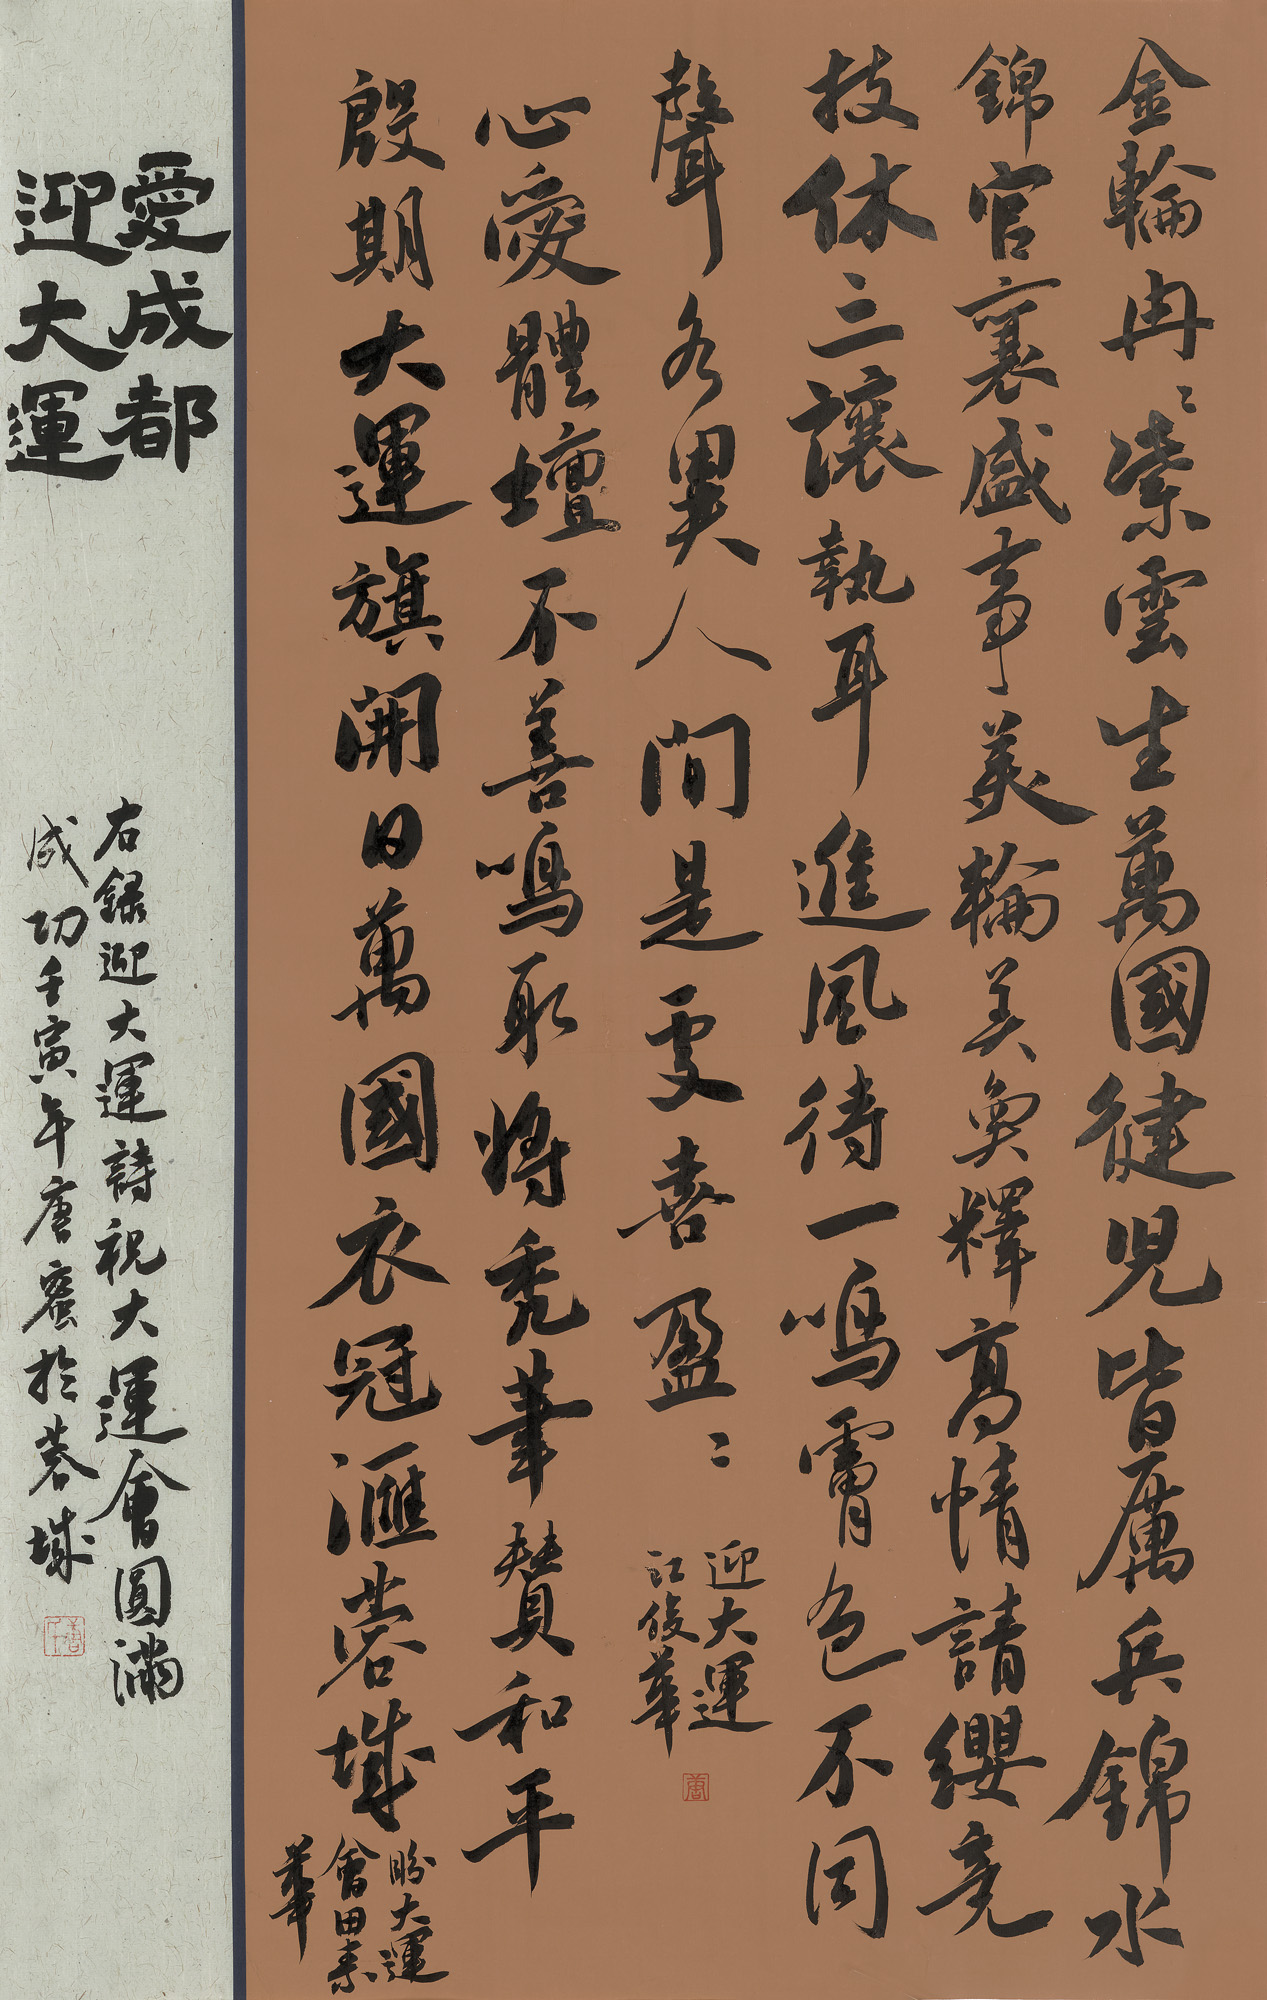 金輪冉〻紫雲生萬國健兒皆厲兵錦水
錦官襄盛事美輪美奐釋高情請纓競
技休云讓執耳進風待一鳴膚色不同
聲各異人間是處喜盈〻
迎大運
江俊華
心愛體壇不善鳴取將禿筆贊和平
殷期大運旗開日萬國衣冠滙蓉城
盼大運
會田素
華
愛成都
迎大運
右錄迎大運詩祝大運會圓滿
成功壬寅年唐密於蓉城